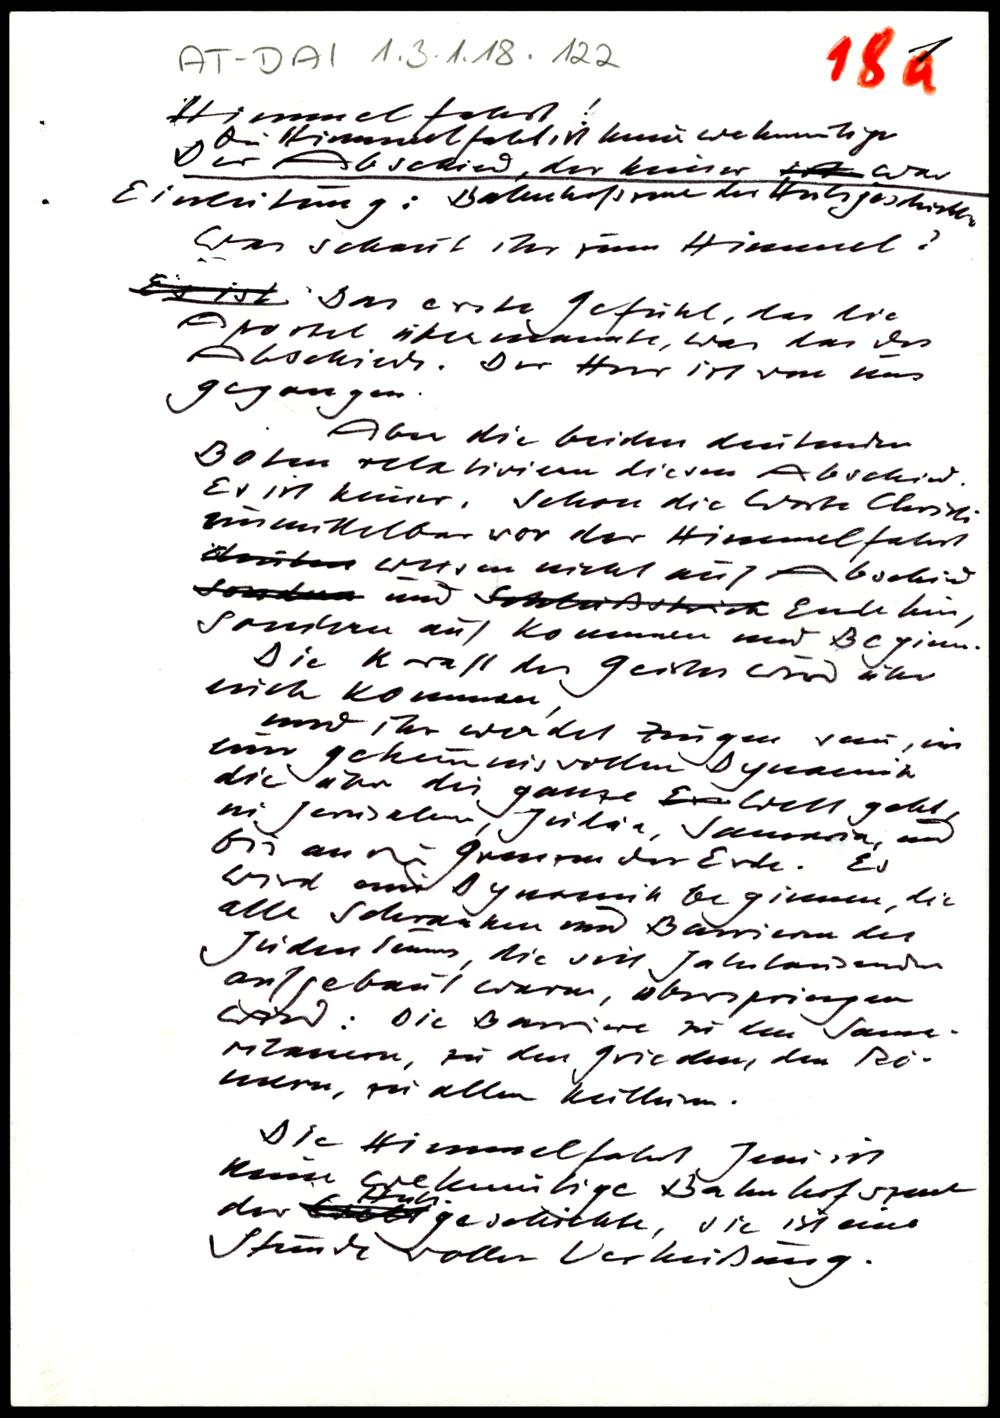 AT-DAI 1.3.1.18.122
18a
Himmelfahrt!
Die Himmelfahrt ist keine wehmütige
Der Abschied, der keiner ist war
Einleitung: Bahnhofszene der Heilsgeschichte
Was schaut ihr zum Himmel?
Es ist Das erste Gefühl, das die
Apostel übermannte, war das des
Abschieds. Der Herr ist von uns
gegangen.
Aber die beiden deutenden
Boten relativieren diesen Abschied.
Es ist keiner. Schon die Worte Christi
unmittelbar vor der Himmelfahrt
deuten weisen nicht auf Abschied
sondern und Schlußstrich Ende hin,
sondern auf Kommen und Beginn.
Die Kraft des Geistes wird über
euch kommen,
und ihr werdet Zeugen sein, in
einer geheimnisvollen Dynamik
die über die ganze Welt geht,
in Jerusalem, Judäa, Samaria, und
bis an die Grenzen der Erde. Es
wird eine Dynamik beginnen, die
alle Schranken und Barrieren des
Judentums, die seit Jahrtausenden
aufgebaut waren, überspringen
wird: Die Barriere zu den Sama-
ritanern, zu den Griechen, den Rö-
mern, zu allen Kulturen.
Die Himmelfahrt Jesu ist
keine wehmütige Bahnhofszene
der Heilsgeschichte, sie ist eine
Stunde voller Verheißung.